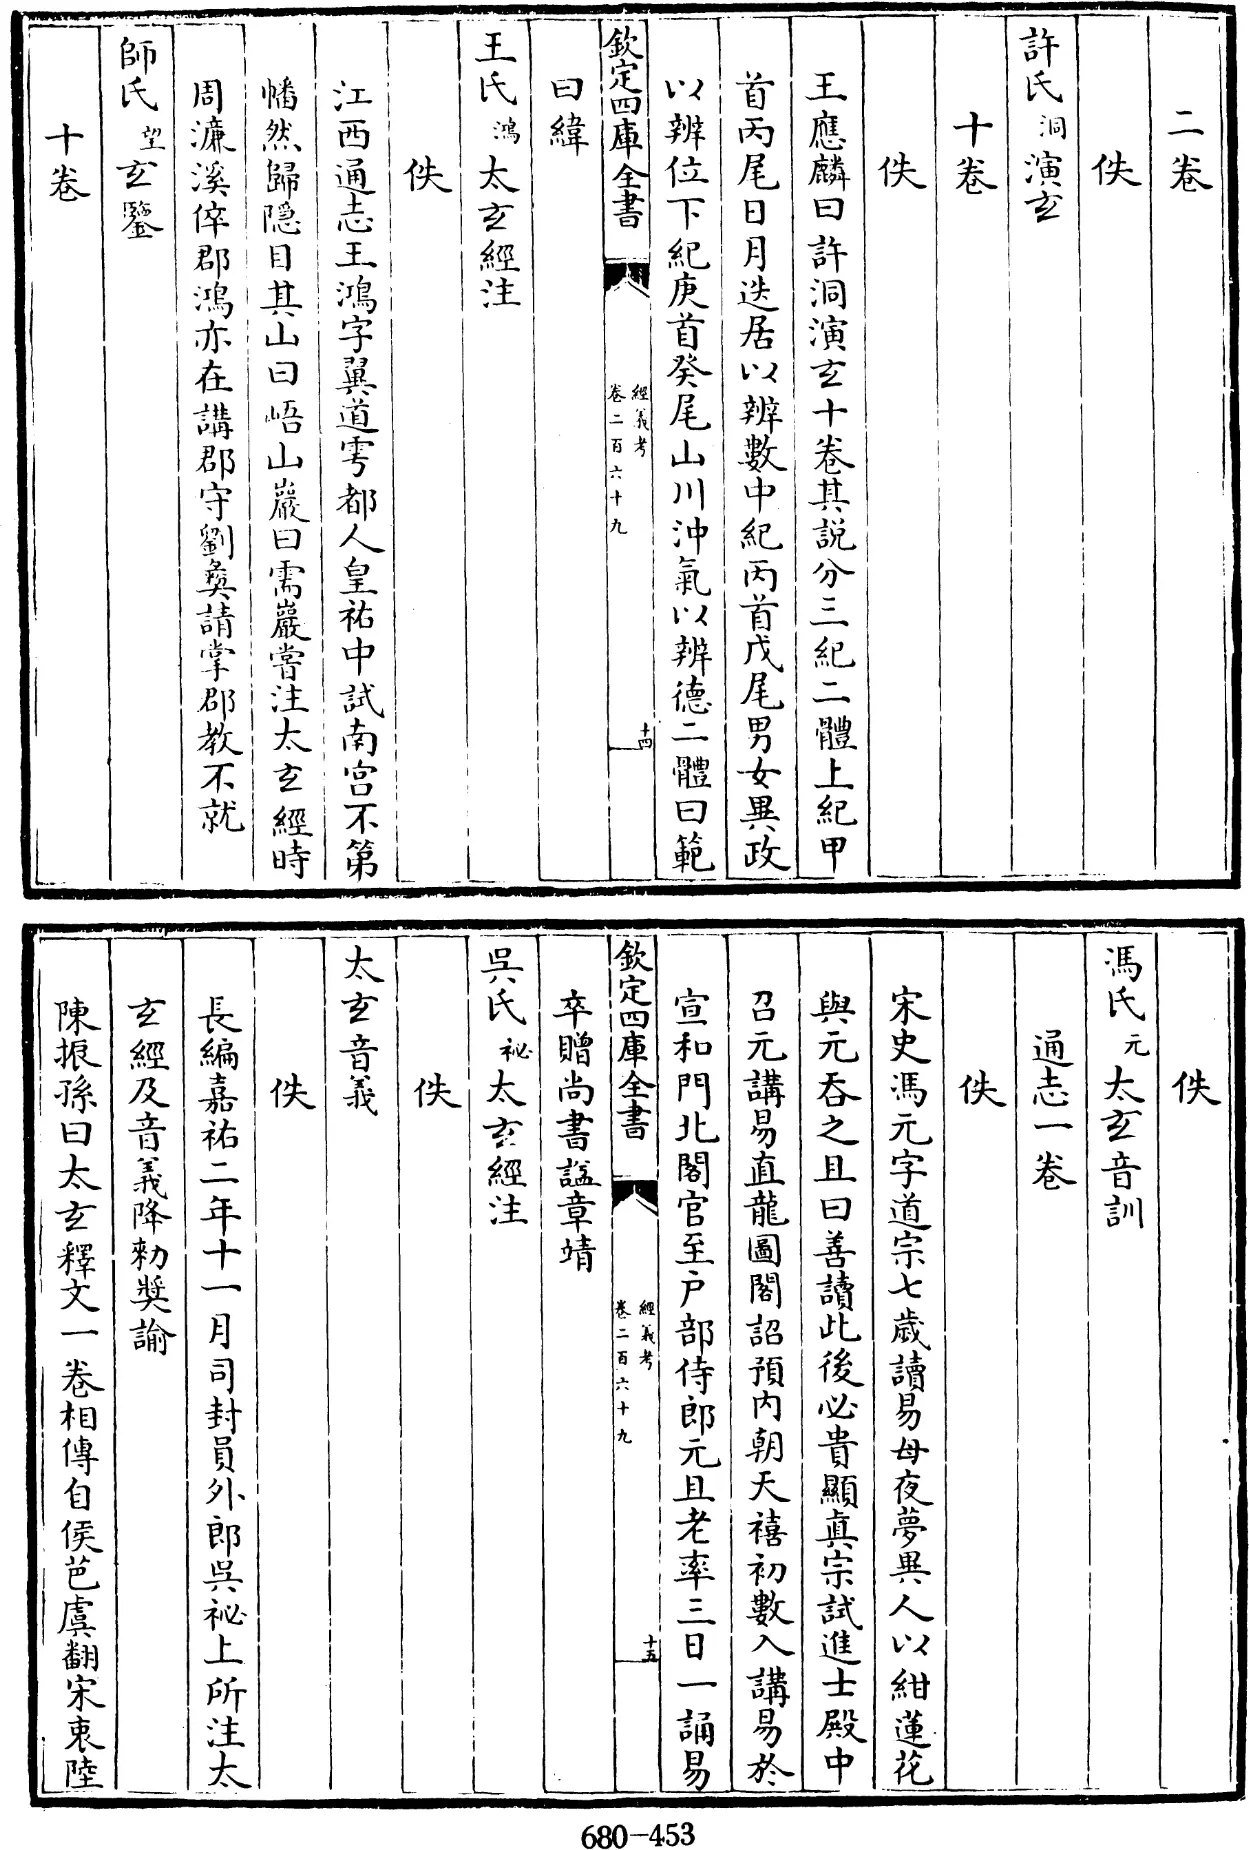 二卷
佚
許氏洞演玄
十卷
佚
王應麟曰許洞演玄十卷其説分三紀二體上紀甲
首丙尾日月迭居以辨數中紀丙首戊尾男女異政
以辨位下紀庚首癸尾山川沖氣以辨德二體曰範
欽定四庫全書
經義考
卷二百六十九
十四
曰緯
王氏鴻太玄經注
佚
江西通志王鴻字翼道雩都人皇祐中試南宫不第
幡然歸隠目其山曰峿山巖曰需巖嘗注太玄經時
周濂溪倅郡鴻亦在講郡守劉彝請掌郡教不就
師氏望玄鑒
十卷
佚
馮氏元太玄音訓
通志一卷
佚
宋史馮元字道宗七歲讀易母夜夢異人以紺蓮花
與元吞之且曰善讀此後必貴顯真宗試進士殿中
召元講易直龍圖閣詔預内朝天禧初數入講易於
宣和門北閣官至户部侍郎元且老率三日一誦易
欽定四庫全書
經義考
卷二百六十九
十五
卒贈尚書諡章靖
吳氏祕太玄經注
佚
太玄音義
佚
長編嘉祐二年十一月司封員外郎吳祕上所注太
玄經及音義降勅奬諭
陳振孫曰太玄釋文一卷相傳自侯芭虞翻宋衷陸
680-453